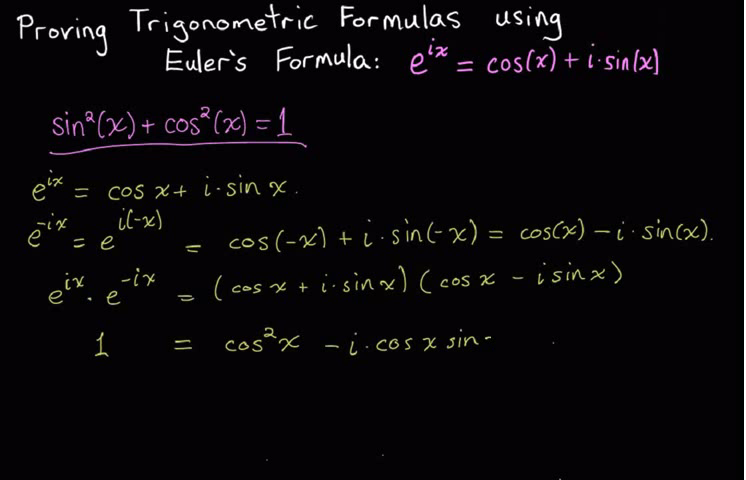 Proving Trigonometric Formulas using
Euler's Formula: e^{ix} = cos(x) + i·sin(x)
sin²(x) + cos²(x) = 1
e^{ix} = cos x + i·sin x.
e^{-ix} = e^{i(-x)} = cos(-x) + i·sin(-x) = cos(x) - i·sin(x).
e^{ix}·e^{-ix} = (cos x + i·sin x)(cos x - i sin x)
1 = cos²x - i·cos x sin